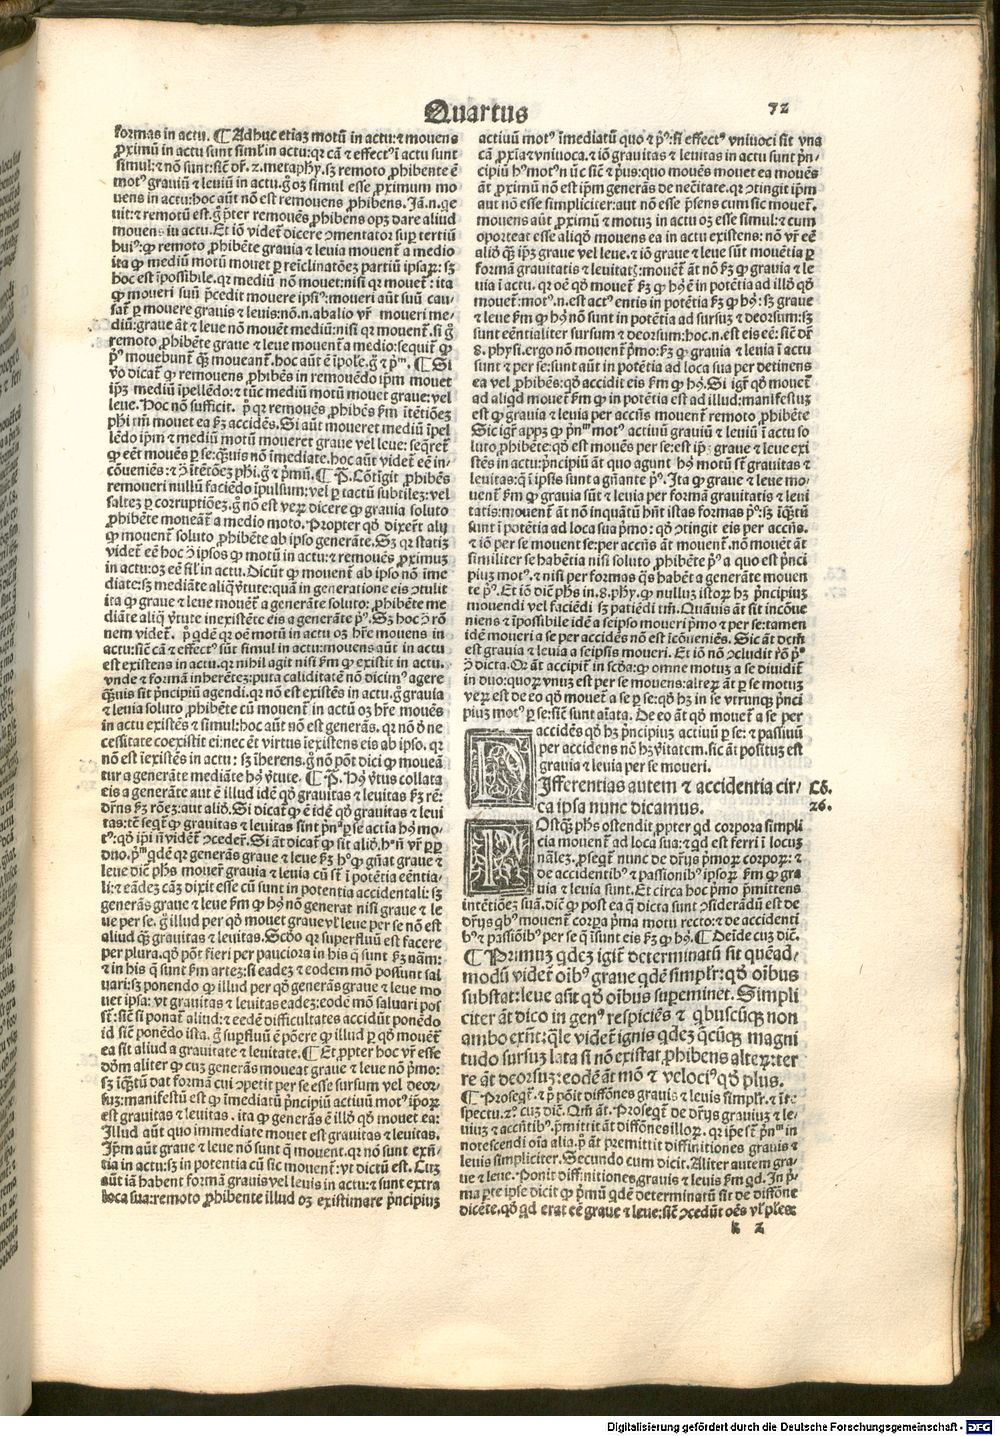 Quartus 72
formas in actu. ¶ Ad huc etiaꝫ motū in actu: ⁊ mouens
ꝓximū in actu sunt simĺ in actu: qꝛ cā ⁊ effectꝰ ī actu sunt
simul: ⁊ nō sunt: sic̄ dr̄. 2. metaphy. sꝫ remoto ꝓhibente ē
motꝰ grauiū ⁊ leuiū in actu. g̊ oꝫ simul esse ꝓximum mo
uens in actu: hoc aūt nō est remouens ꝓhibens. Jā .n. qe
uit: ⁊ remotū est. g̊ ꝓpter remouēs ꝓhibens opꝫ dare aliud
mouens in actu. Et iō videt̄ dicere ꝯmentator suꝑ tertiū
huiꝰ: ꝙ remoto ꝓhibēte grauia ⁊ leuia mouent̄ a medio
ita ꝙ mediū motū mouet ꝑ reīclinatōeꝫ partiū ipsaꝝ: sꝫ
hoc est īpossibile. qꝛ mediū nō mouet: nisi qꝛ mouet̄: ita
ꝙ moueri suū p̄cedit mouere ipsiꝰ: moueri aūt suū cau
sat̄ ꝑ mouere grauis ⁊ leuis: nō .n. ab alio vr̄ moueri me
diū: graue āt ⁊ leue nō mouēt mediū: nisi qꝛ mouent̄. si g̊
remoto ꝓhibēte graue ⁊ leue mouent̄ a medio: sequit̄ ꝙ
pꝰ mouebunt̄ q̄ꝫ moueant̄. hoc aūt ē īpole. g̊ ⁊ pᵐ. ¶ Si
vō dicat̄ ꝙ remouens ꝓhibēs in remouēdo ip̄m mouet
ip̄ꝫ mediū īpellēdo: ⁊ tūc mediū motū mouet graue: vel
leue. Hoc nō sufficit. p̊ qꝛ remouēs ꝓhibēs s̄m ītētiōeꝫ
ph̄i tm̄ mouet ea s̄ꝫ accidēs. Si aūt moueret mediū īpel
lēdo ip̄m ⁊ mediū motū moueret graue vel leue: seqret̄
ꝙ eēt mouēs ꝑ se: q̄uis nō īmediate. hoc aūt videt̄ eē in
cōueniēs: ⁊ ꝯ̄ ītētōeꝫ ph̄i. g̊ ⁊ p̄mū. ¶ P̄. Cōtīgit ꝓhibēs
remoueri nullū faciēdo īpulsum: vel ꝑ tactū subtileꝫ: vel
saltez ꝑ corruptiōeꝫ. g̊ nō est veꝝ dicere ꝙ grauia soluto
ꝓhibēte moueāt̄ a medio moto. Propter qd̄ dixer̄t aliq
ꝙ mouent̄ soluto ꝓhibēte ab ipso generāte. Sꝫ qꝛ statiꝫ
videt̄ eē hoc ꝯ̄ ipsos ꝙ motū in actu: ⁊ remouēs ꝓximuꝫ
in actu: oꝫ eē siĺ in actu. Dicūt ꝙ mouent̄ ab ipso nō īme
diate: sꝫ mediāte aliq̄ v̄tute: quā in generatione eis ꝯtulit
ita ꝙ graue ⁊ leue mouēt̄ a generāte soluto: ꝓhibēte me
diāte aliq̄ v̄tute inexistēte eis a generāte pꝰ. Sꝫ hoc ꝯ̄ rō
nem videt̄. p̊ qdē qꝛ oē motū in actu oꝫ hr̄e mouens in
actu: sic̄ cā ⁊ effectꝰ sūt simul in actu: mouens aūt in actu
est existens in actu. qꝛ nihil agit nisi s̄m ꝙ existit in actu.
vnde ⁊ formā inherēteꝫ: puta caliditatē nō dicimꝰ agere
q̄ꝫuis sit p̄ncipiū agendi. qꝛ nō est existēs in actu. g̊ grauia
⁊ leuia soluto ꝓhibēte cū mouent̄ in actu oꝫ hr̄e mouēs
in actu existēs ⁊ simul: hoc aūt nō est generās. qꝛ nō de ne
cessitate coexistit ei: nec ēt virtus īexistens eis ab ipso. qꝛ
nō est īexistēs in actu: sꝫ īherens. g̊ nō pōt dici ꝙ moueā
tur a generāte mediāte hꝰ v̄tute. ¶ P̄. Hꝰ v̄tus collata
eis a generāte aut ē illud idē qd̄ grauitas ⁊ leuitas s̄ꝫ rē:
dr̄ns s̄ꝫ rōeꝫ: aut aliō. Si dicat̄ ꝙ ē idē qd̄ grauitas ⁊ leui
tas: tē seqt̄ ꝙ grauitas ⁊ leuitas sint p̄nᵃ ꝑ se actia hꝰ mo
tꝰ: qd̄ ip̄i n̄ vident̄ ꝯceder̄. Si āt dicat̄ ꝙ sit aliō. hᵒ n̄ vr̄ ꝓp̄
duo. pᵐ qdē qꝛ generās graue ⁊ leue s̄ꝫ hᵒ ꝙ gn̄at graue ⁊
leue dic̄ ph̄s mouer̄ grauia ⁊ leuia cū st̄ ī potētia eēntia
li: ⁊ eādeꝫ cāꝫ dixit esse cū sunt in potentia accidentali: sꝫ
generās graue ⁊ leue s̄m ꝙ hꝰ nō generat nisi graue ⁊ le
ue per se. g̊ illud per qd̄ mouet graue vĺ leue per se nō est
aliud q̄ꝫ grauitas ⁊ leuitas. Scd̄o qꝛ superfluū est facere
per plura. qd̄ pōt fieri per pauciora in his q̄ sunt s̄ꝫ nām:
⁊ in his q̄ sunt s̄m arteꝫ: si eadeꝫ ⁊ eodem mō possunt sal
uari: sꝫ ponendo ꝙ illud per qd̄ generās graue ⁊ leue mo
uet ipsa: vt grauitas ⁊ leuitas eadeꝫ: eodē mō saluari pos
st̄: sic̄ si ponat̄ aliud: ⁊ eedē difficultates accidūt ponēdo
id sic̄ ponēdo ista. g̊ suꝑfluū ē pōere ꝙ illud ꝑ qd̄ mouēt̄
ea sit aliud a grauitate ⁊ leuitate. ¶ Et ꝓpter hoc vr̄ esse
dōm aliter ꝙ cuꝫ generās moueat graue ⁊ leue nō p̄mo:
sꝫ īq̄ꝫtū dat formā cui ꝯpetit per se esse sursum vel deor
suꝫ: manifestū est ꝙ īmediatū p̄ncipiū actiuū motꝰ ip̄oꝝ
est grauitas ⁊ leuitas. ita ꝙ generās ē illō qd̄ mouet ea:
Illud aūt quo immediate mouet est grauitas ⁊ leuitas.
Ip̄m aūt graue ⁊ leue nō sunt q̄ mouent. qꝛ nō sunt exn̄
tia in actu: sꝫ in potentia cū sic mouent̄: vt dictū est. Cuꝫ
aūt iā habent formā grauis vel leuis in actu: ⁊ sunt extra
loca sua: remoto ꝓhibente illud oꝫ existimare p̄ncipius
actiuū motꝰ īmediatū quo ⁊ pꝰ: si effectꝰ vniuoci sit vna
cā ꝓxīa ⁊ vniuoca. ⁊ iō grauitas ⁊ leuitas in actu sunt p̄n
cipiū hꝰ motꝰ n̄c sic̄ ⁊ p̄us: quo mouēs mouet ea mouēs
āt ꝓximū nō est ip̄m generās de nec̄itate. qꝛ ꝯtingit ip̄m
aut nō esse simpliciter: aut nō esse p̄sens cum sic mouet̄.
mouens aūt ꝓximū ⁊ motuꝫ in actu oꝫ esse simul: ⁊ cum
oporteat esse aliqd̄ mouens ea in actu existens: nō vr̄ eē
aliō q̄ꝫ ip̄ꝫ graue vel leue. ⁊ iō graue ⁊ leue sūt mouētia ꝑ
formā grauitatis ⁊ leuitatꝫ: mouēt̄ āt nō s̄ꝫ ꝙ grauia ⁊ le
uia ī actu. qꝛ oē qd̄ mouet̄ s̄ꝫ ꝙ hꝰ ē in potētia ad illō qd̄
mouet̄: motꝰ .n. est actꝰ entis in potētia s̄ꝫ ꝙ hꝰ: sꝫ graue
⁊ leue s̄m ꝙ hꝰ nō sunt in potētia ad sursuꝫ ⁊ deorsum: sꝫ
sunt eēntialiter sursum ⁊ deorsum: hoc .n. est eis eē: sic̄ dr̄
8. physi. ergo nō mouent̄ p̄mo: s̄ꝫ ꝙ grauia ⁊ leuia ī actu
sunt ⁊ per se: sunt aūt in potētia ad loca sua per detinens
ea vel ꝓhibēs: qd̄ accidit eis s̄m ꝙ hꝰ. Si igr̄ qd̄ mouet̄
ad aliqd̄ mouet̄ s̄m ꝙ in potētia est ad illud: manifestuꝫ
est ꝙ grauia ⁊ leuia per accn̄s mouent̄ remoto ꝓhibēte
Sic igr̄ appꝫ ꝙ p̄nᵐ motꝰ actiuū grauiū ⁊ leuiū ī actu so
luto ꝓhibēte: qd̄ est mouēs per se: est ip̄m graue ⁊ leue exi
stēs in actu: p̄ncipiū āt quo agunt hꝰ motū st̄ grauitas ⁊
leuitas: q̄ ī ipsis sunt a gn̄ante pꝰ. Ita ꝙ graue ⁊ leue mo
uent̄ s̄m ꝙ grauia sūt ⁊ leuia per formā grauitatis ⁊ leui
tatis: mouent̄ āt nō inquātū hn̄t istas formas pꝰ: sꝫ īq̄ꝫtū
sunt ī potētia ad loca sua p̄mo: qd̄ ꝯtingit eis per accn̄s.
⁊ iō per se mouent se: per accn̄s āt mouent̄. nō mouēt āt
similiter se habētia nisi soluto ꝓhibēte pꝰ a quo est p̄nci
piuꝫ motꝰ. ⁊ nisi per formas q̄s habēt a generāte mouen
te pꝰ. Et iō dic̄ ph̄s in .8. phꝰ. ꝙ nulluꝫ istoꝝ hꝫ p̄ncipiuꝫ
mouendi vel faciēdi sꝫ patiēdi tm̄. Quāuis āt sit incōue
niens ⁊ īpossibile idē a seipso moueri p̄mo ⁊ per se: tamen
idē moueri a se per accidēs nō est īcōueniēs. Sic āt dcm̄
est grauia ⁊ leuia a seipsis moueri. Et iō nō ꝯcludit rō pꝰ
ꝯ̄ dicta. Or āt accipit̄ in scd̄a: ꝙ omne motuꝫ a se diuidit̄
in duo: quoꝝ vnuꝫ est per se mouens: alteꝝ āt ꝑ se motuꝫ
veꝝ est de eo qd̄ mouet̄ a se ꝑ se: qd̄ hꝫ in se vtrunqꝫ p̄nci
piuꝫ motꝰ ꝑ se: sic̄ sunt aīata. De eo āt qd̄ mouet̄ a se per
accidēs qd̄ hꝫ p̄ncipiuꝫ actiuū ꝑ se: ⁊ passiuū
per accidens nō hꝫ v̄itatem. sic āt positus est
grauia ⁊ leuia per se moueri.
Differentias autem ⁊ accidentia cir Cō.
ca ipsa nunc dicamus. 26.
POstq̄ꝫ ph̄s ostendit ꝓpter qd corpora simpli
cia mouent̄ ad loca sua: ⁊ qd est ferri ī locuꝫ
nāleꝫ. ꝓseqt̄ nunc de dr̄ijs p̄moꝝ corpoꝝ: ⁊
de accidentibꝰ ⁊ passionibꝰ ipsoꝝ s̄m ꝙ gra
uia ⁊ leuia sunt. Et circa hoc p̄mo p̄mittens
intētiōeꝫ suā. dic̄ ꝙ post ea q̄ dicta sunt ꝯsiderādū est de
dr̄ijs qbꝰ mouent̄ corꝑa p̄ma motu recto: ⁊ de accidenti
bꝰ ⁊ passiōibꝰ per se q̄ īsunt eis s̄ꝫ ꝙ hꝰ. ¶ Deīde cuꝫ dic̄.
¶ Primuꝫ qdeꝫ igit̄ determinatū sit quēad
modū videt̄ oībꝰ graue qdē simplr̄: qd̄ oībus
substat: leue aūt qd̄ oībus supeminet. Simpli
citer āt dico in genꝰ respiciēs ⁊ qbuscūqꝫ non
ambo exn̄t: q̄le videt̄ ignis qdeꝫ q̄cūqꝫ magni
tudo sursuꝫ lata si nō existat ꝓhibens alteꝝ: ter
re āt deorsuꝫ: eodē āt mō ⁊ velociꝰ qd̄ plus.
¶ Prosequit̄. ⁊ p̊ pōit diffōnes grauis ⁊ leuis simplr̄. ⁊ īre
spectu. 2ᵒ cuꝫ dic̄. Qm̄ āt. Proseqt̄ de dr̄ijs grauiuꝫ ⁊ le
uiuꝫ ⁊ accn̄tibꝰ. p̄mittit āt diffōnes illoꝝ. qꝛ ip̄e st̄ p̄nᵐ in
notescendi oīa alia. p̊ āt premittit diffinitiones grauis ⁊
leuis simpliciter. Secundo cum dicit. Aliter autem gra
ue ⁊ leue. Ponit diffinitiones grauis ⁊ leuis s̄m qd. In p̄
ma ꝑte ipse dicit ꝙ p̄mū qdē determinatū sit de diffōne
dicēte. qd̄ qd erat eē graue ⁊ leue: sic̄ ꝯcedūt oēs vĺ ples
k 2
Digitalisierung gefördert durch die Deutsche Forschungsgemeinschaft - DFG